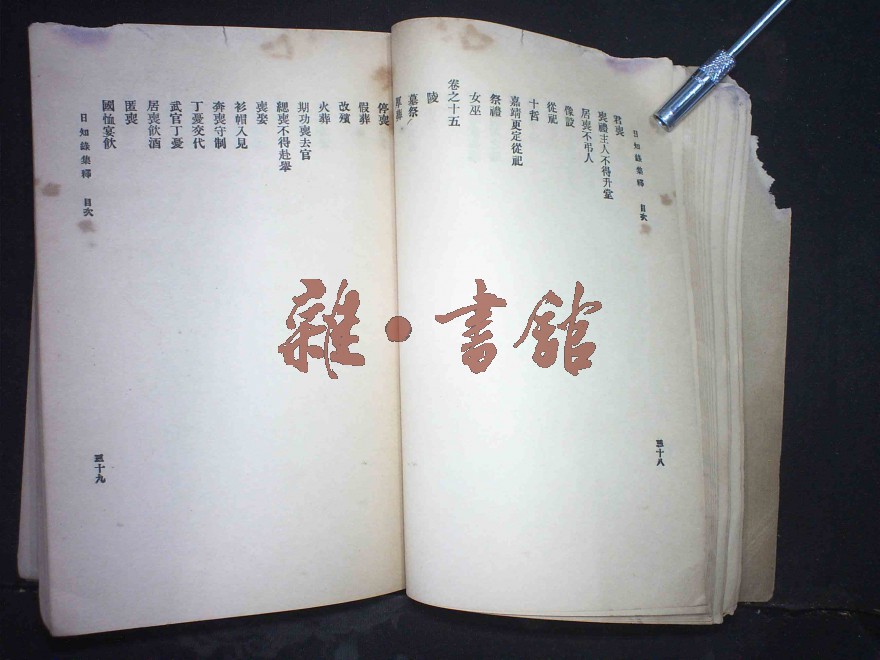 日知錄集釋　目次
君喪
喪禮主人不得升堂
居喪不弔人
像設
從祀
十哲
嘉靖更定從祀
祭禮
女巫
卷之十五
陵
墓祭
厚葬
三十八
停喪
假葬
改殯
火葬
期功喪去官
緦喪不得赴舉
喪娶
衫帽入見
奔喪守制
丁憂交代
武官丁憂
居喪飲酒
匿喪
國恤宴飲
日知錄集釋　目次
三十九
雜·書館